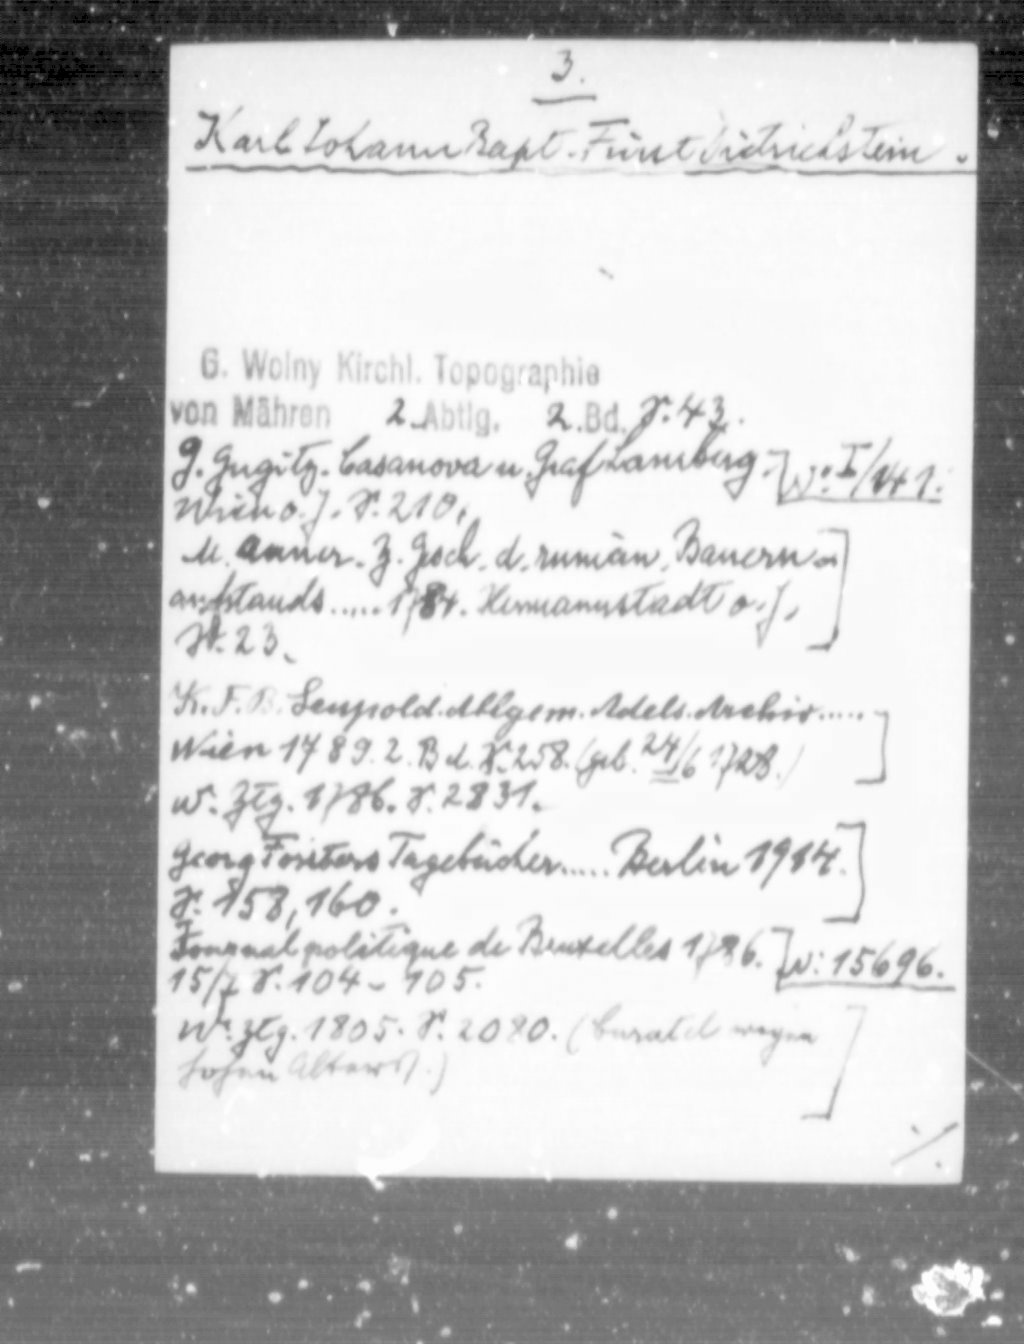 3.
Karl Johann Bapt. Fürst Dietrichstein.
G. Wolny Kirchl. Topographie
von Mähren 2. Abtlg. 2. Bd. S. 43.
G. Gugitz. Casanova u. Graf Lamberg.
W: I/141.
Wien o. J. S. 210.
M. Auner. Z. Gsch. d. rumän. Bauern=
aufstands ..... 1784. Hermannstadt o. J.
S. 23.
K. F. B. Leupold. Allgem. Adels. Archiv .....
Wien 1789. 2. Bd. S. 258. (geb. 24/6 1728.)
W. Ztg. 1786. S. 2831.
Georg Forsters Tagebücher ..... Berlin 1914.
S. 158, 160.
Journal politique de Bruxelles 1786.
W: 15696.
15/7 S. 104 - 105.
W. Ztg. 1805. S. 2080. ( wegen
hohen Alters.)
./.